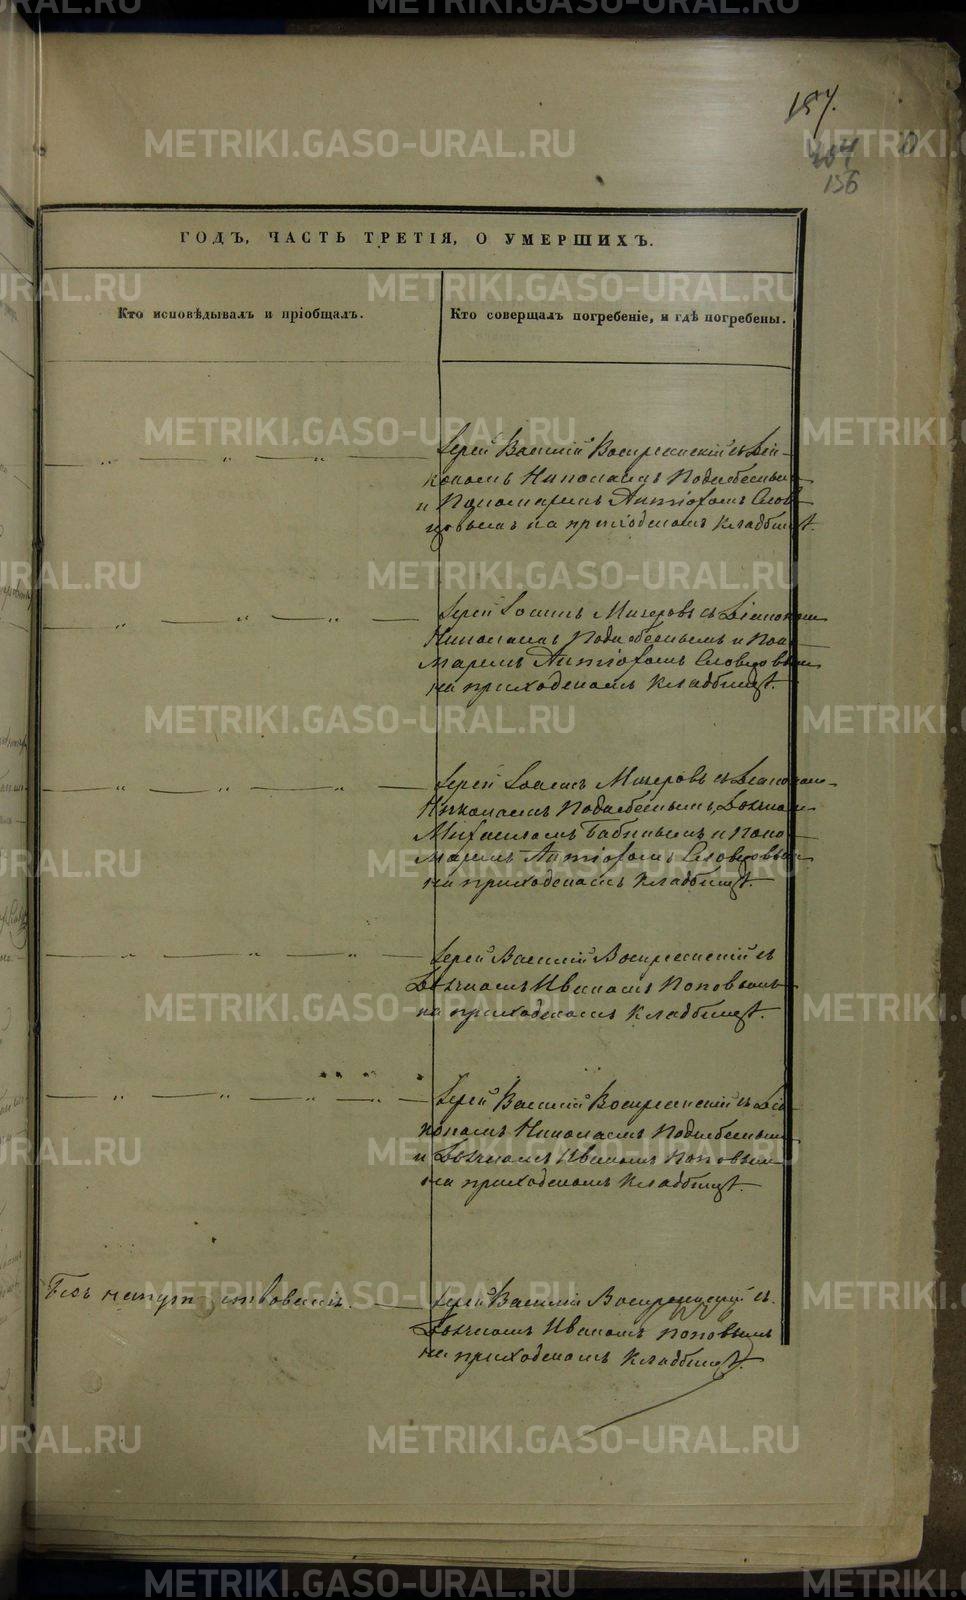 157.
156
ГОДЪ, ЧАСТЬ ТРЕТІЯ, О УМЕРШИХЪ.
Кто исповѣдывалъ и пріобщалъ.
Кто совершалъ погребеніе, и гдѣ погребены.
Іерей Василій Воскресенскій съ Діа-
кономъ Николаемъ
и Пономаремъ Антіохомъ Слов-
цовымъ на приходскомъ кладбищѣ.
Іерей Іоаннъ Мизеровъ съ Діакономъ
Николаемъ и Поно-
маремъ Антіохомъ Словцовымъ
на приходскомъ кладбищѣ.
Іерей Іоаннъ Мизеровъ съ Діакономъ
Николаемъ Дьячкомъ
Михаиломъ Бабинымъ и Поно-
маремъ Антіохомъ Словцовымъ
на приходскомъ кладбищѣ.
Іерей Василій Воскресенскій съ
Дьячкомъ Иваномъ Поповымъ
на приходскомъ кладбищѣ.
Іерей Василій Воскресенскій съ Діа-
кономъ Николаемъ
и Дьячкомъ Иваномъ Поповымъ
на приходскомъ кладбищѣ.
Безъ напутствованія.
Іерей Василій Воскресенскій съ
Дьячкомъ Иваномъ Поповымъ
на приходскомъ кладбищѣ.
METRIKI.GASO-URAL.RU